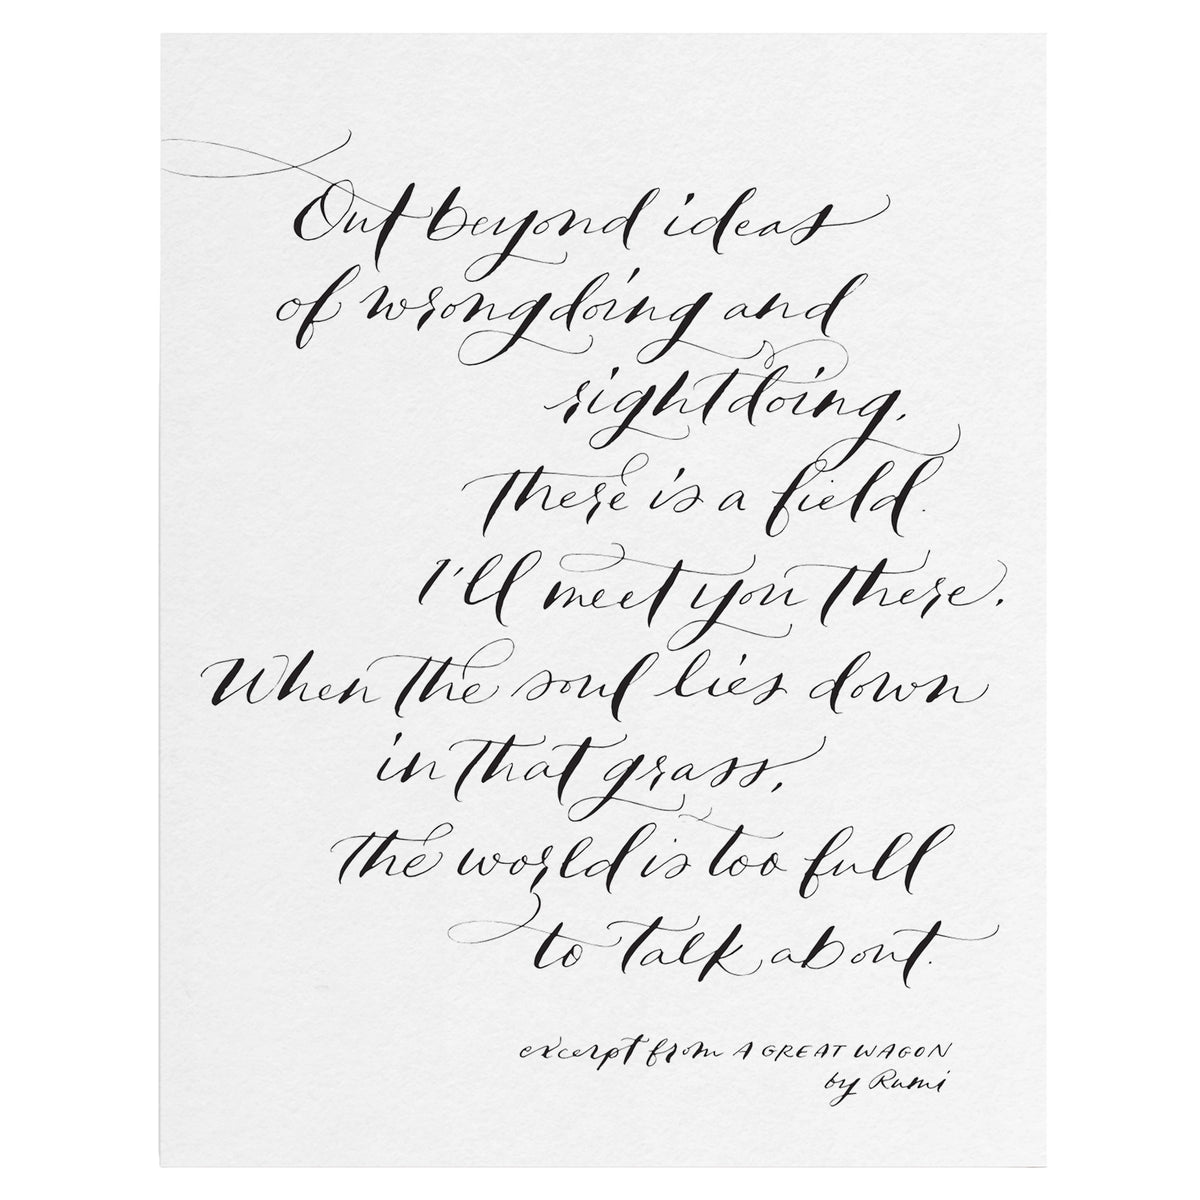 Out beyond ideas
of wrongdoing and
rightdoing,
there is a field.
I'll meet you there.
When the soul lies down
in that grass,
the world is too full
to talk about.
excerpt from A GREAT WAGON
by Rumi